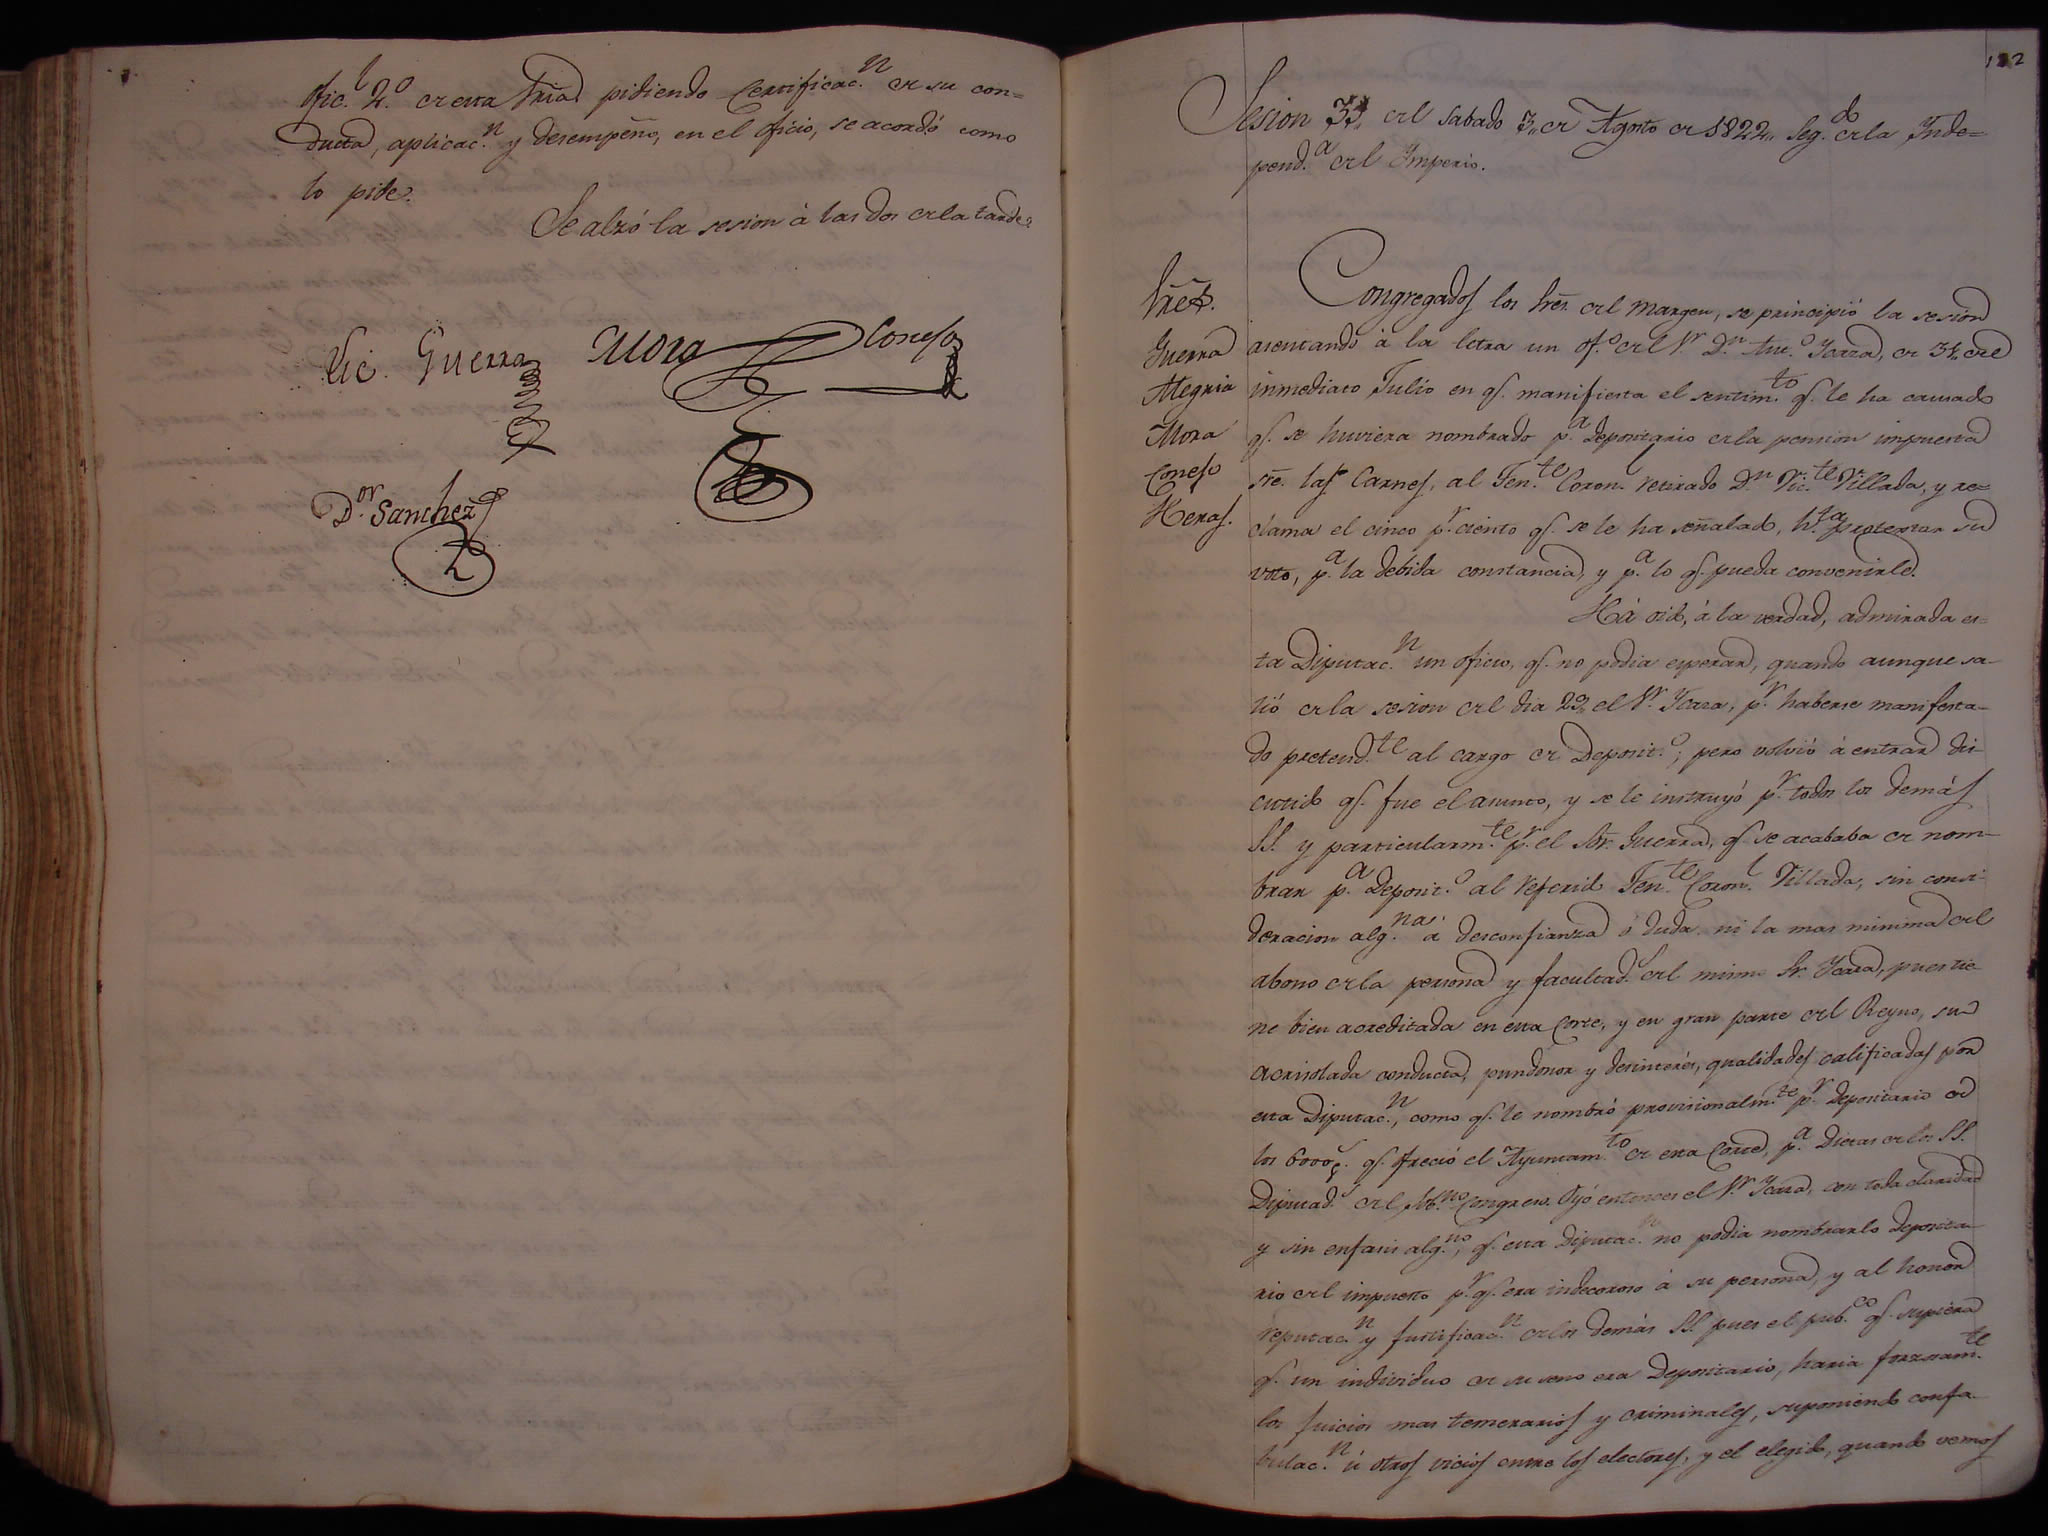 ofic.l 2.º de esta Sria. pidiendo Certificac.n de su con=
ducta, aplicac.n y desempeño, en el oficio, se acordó como
lo pide.
Se alzó la sesion à las dos de la tarde.
Lic. Guerra Mora Conejo
D.or Sanchez
182
Sesion 33 del Sabado 3,, de Agosto de 1822,, Seg.do de la Inde=
pend.a del Imperio.
Sres.
Guerra
Alegria
Mora
Conejo
Heras.
Congregados los Sres. del margen, se principió la sesion
asentando à la letra un of.º del S.r D.n Ant.º Ycaza, de 31,, del
inmediato Julio en q.e manifiesta el sentim.to q.e le ha causado
q.e se huviera nombrado p.a depositario de la pension impuesta
sre. las Carnes, al Ten.te Coron.l retirado D.n Vic.te Villada, y re-
clama el cinco p.r ciento q.e se le ha señalado, h.ta protestar su
voto, p.a la debida constancia, y p.a lo q.e pueda convenirle.
Há oido, à la verdad, admirada es=
ta Diputac.n un oficio, q.e no podia esperar, quando aunque sa-
lió de la sesion del dia 23,, el S.r Ycaza, p.r haberse manifesta-
do pretend.te al cargo de Deposit.º; pero volvió à entrar dis-
cutido q.e fue el asunto, y se le instruyó p.r todos los demás
SS. y particularm.te p.r el Sor. Guerra, q.e se acababa de nom-
brar p.a Deposit.º al referido Ten.te Coron.l Villada, sin consi-
deracion alg.na à desconfianza ó duda ni la mas minima del
abono de la persona y facultad.s del mismo Sr. Ycaza, pues tie-
ne bien acreditada en esta Corte, y en gran parte del Reyno, su
acrisolada conducta, pundonor y desinterés, qualidades calificadas por
esta Diputac.n, como q.e le nombró provisionalm.te p.r depositario de
los 6000 p.s q.e ofreció el Ayuntam.to de esta Corte, p.a Dietas de los SS.
Diputad.s del Sob.no Congreso. Dijo entonces el S.r Ycaza, con toda claridad
y sin enfasis alg.no, q.e esta Diputac.n no podia nombrarlo deposita-
rio del impuesto p.r q.e era indecoroso à su persona, y al honor
reputac.n y justificac.n de los demás SS. pues el pub.co q.e supiera
q.e un individuo de su seno era Depositario, haria forzosam.te
los juicios mas temerarios y criminales, suponiendo confa-
bulac.n ú otros vicios entre los electores, y el elegido, quando vemos